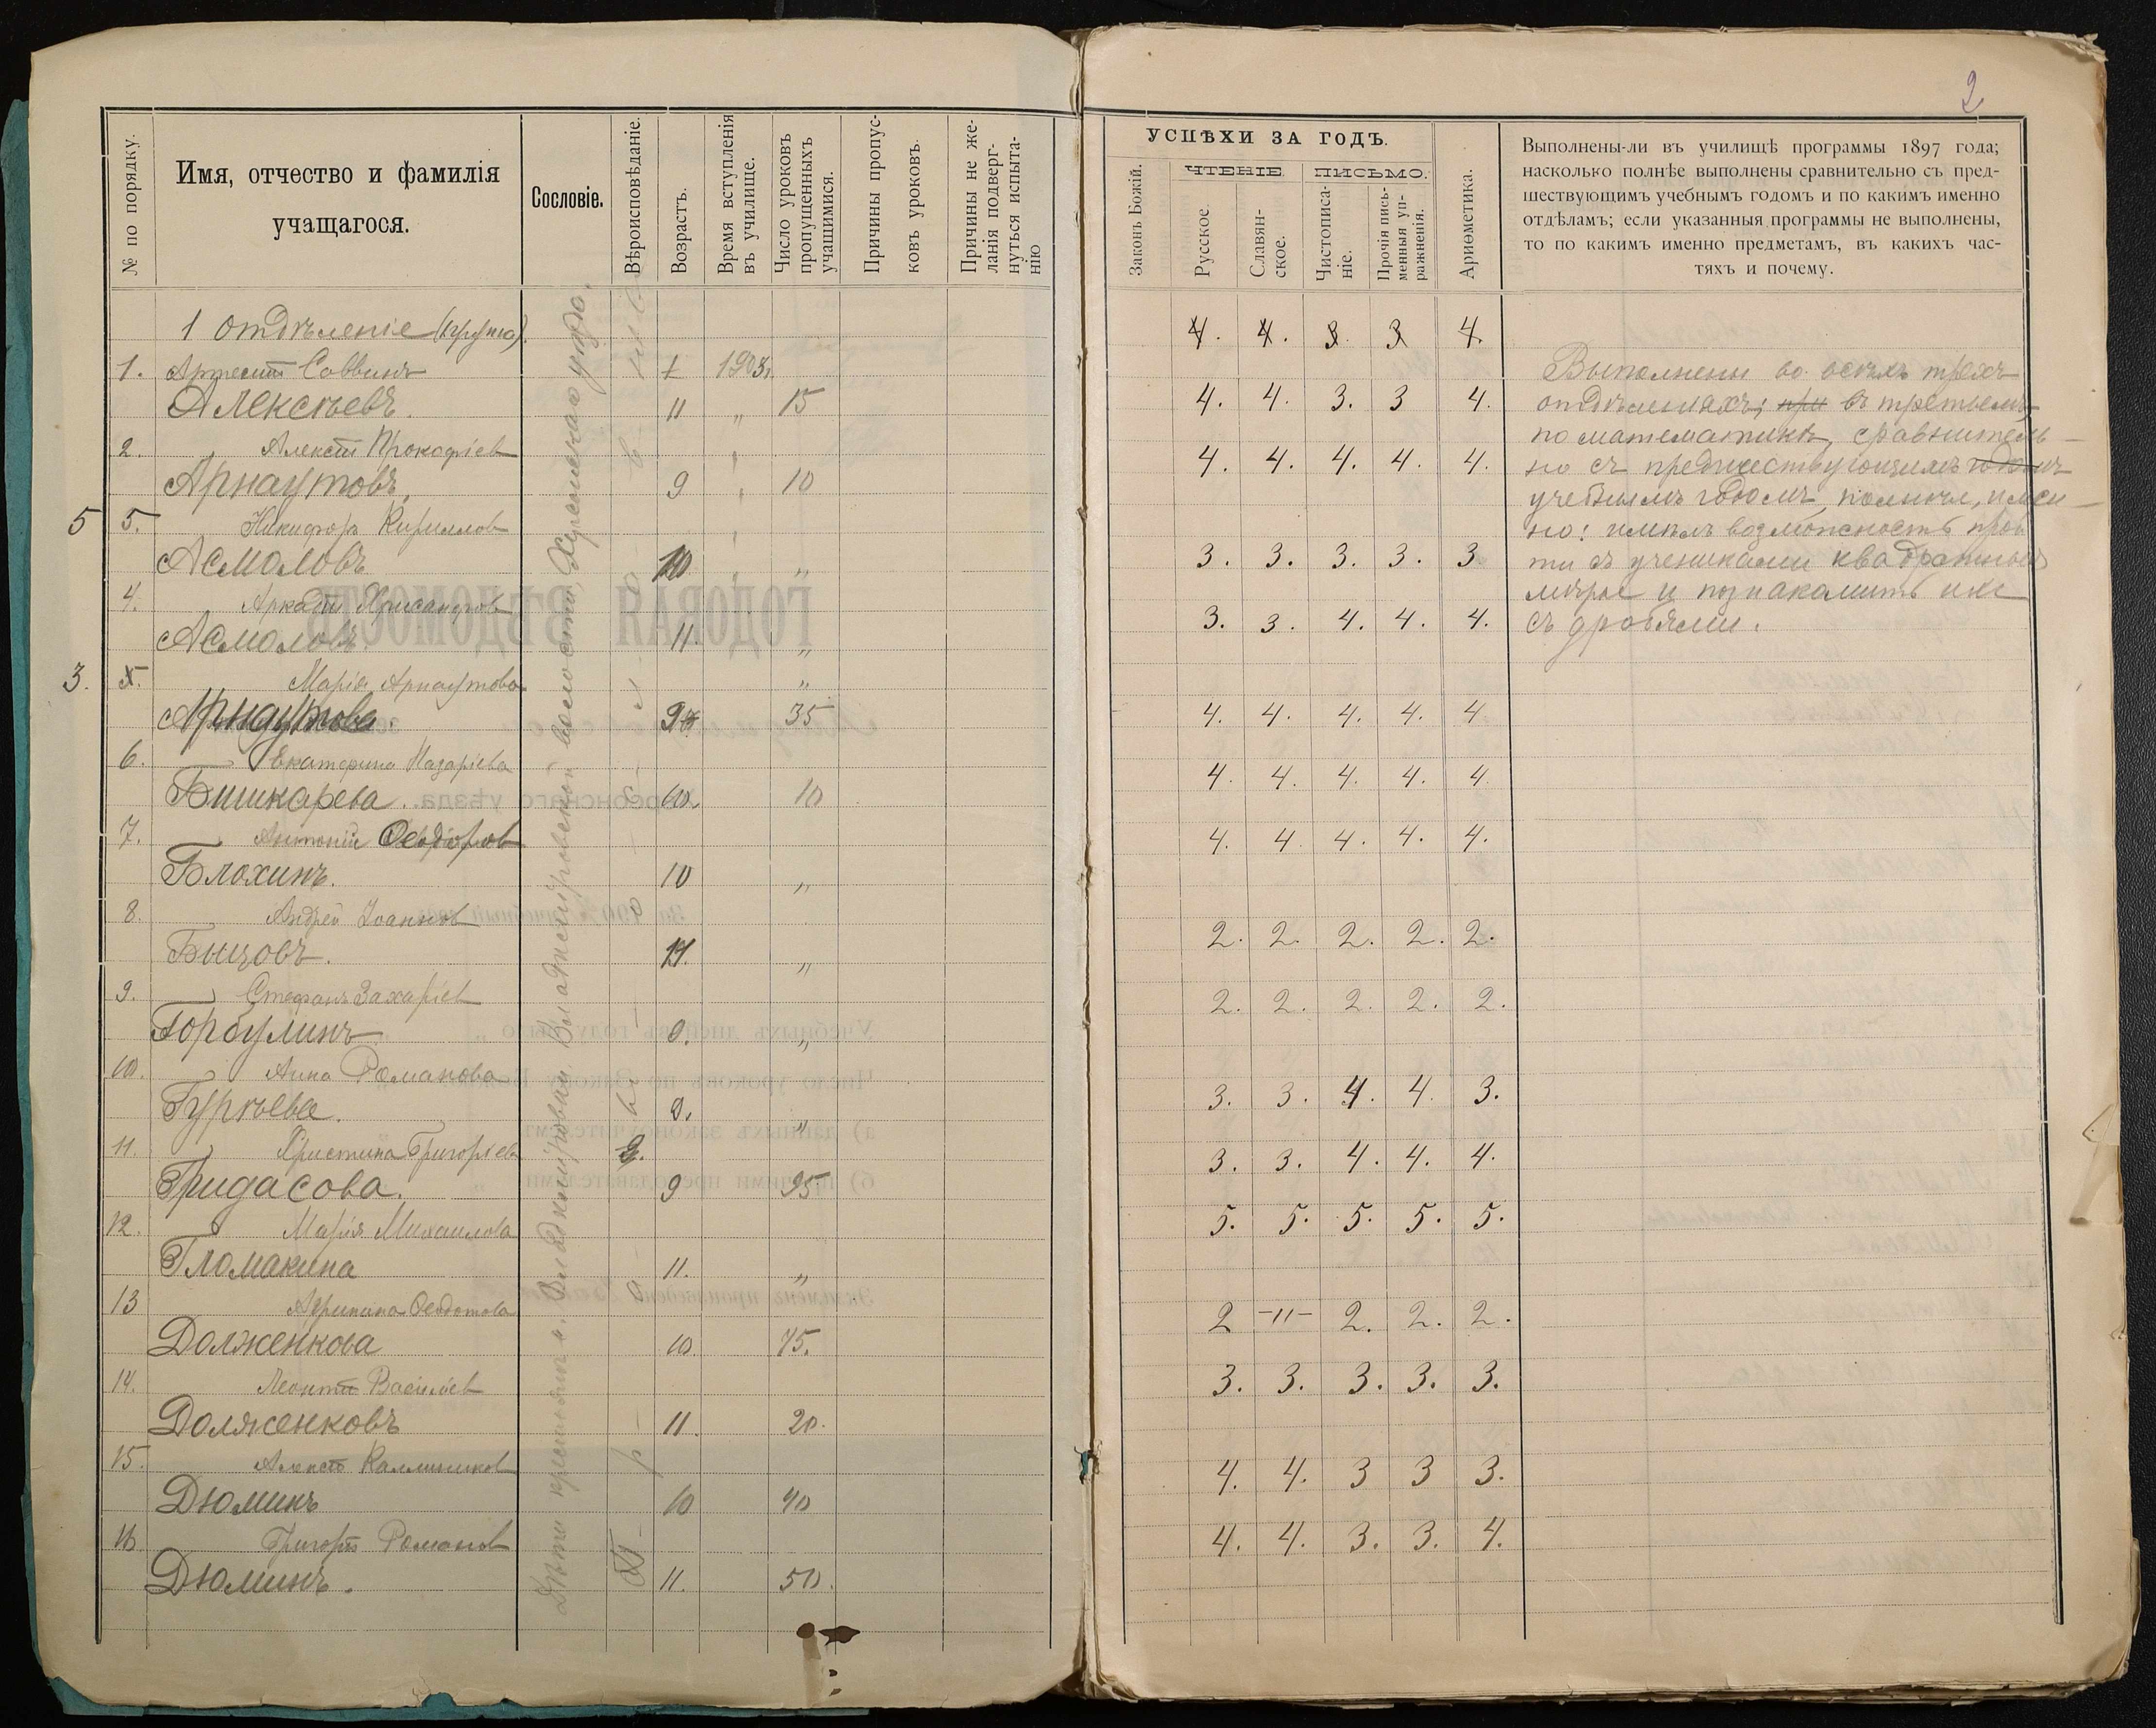 2
№ по порядку.
Имя, отчество и фамилія
учащагося.
Сословіе.
Вѣроисповѣданіе.
Возрастъ.
Время вступленія
въ училище.
Число уроковъ
пропущенныхъ
учащимися.
Причины пропус-
ковъ уроковъ.
Причины не же-
ланія подверг-
нуться испыта-
нію
УСПѢХИ ЗА ГОДЪ.
Законъ Божій.
ЧТЕНІЕ.
Русское.
Славян-
ское.
ПИСЬМО.
Чистописа-
ніе.
Прочія пись-
менныя уп-
ражненія.
Ариѳметика.
Выполнены-ли въ училищѣ программы 1897 года;
насколько полнѣе выполнены сравнительно съ пред-
шествующимъ учебнымъ годомъ и по какимъ именно
отдѣламъ; если указанныя программы не выполнены,
то по какимъ именно предметамъ, въ какихъ час-
тяхъ и почему.
1 отдѣленіе (група).
4. 4. 3. 3 4.
1. Савинъ 1903.
Алексѣевъ. 11 „ 15 4. 4. 3. 3 4.
2. Алексѣй Прокофіев
Арнаутовъ, 9 10 4. 4. 4. 4. 4.
5 5. Никифоръ Кирилловъ
Асмоловъ 10 „ 3. 3. 3. 3. 3
4. Аркадій Хрисанфовъ
Асмоловъ. 11. „ 3. 3. 4. 4. 4.
3. Марія Арнаутова „
Арнаутова. 9 35 4. 4. 4. 4. 4
6. Екатерина Назаріева
Бишкарева. 10. 10 4. 4. 4. 4. 4
7. Антоній Ѳеодоров
Блохинъ. 10 „ 4. 4 4. 4. 4.
8. Андрей Іоаннов
Бицовъ. 11. „ 2. 2. 2. 2. 2.
9. Стефанъ Захаріев
Горбулинъ „ 2. 2. 2. 2. 2.
10. Анна Романова
Гурѣева. „ 3. 3. 4. 4. 3.
11. Христина Григоріева
Гридасова. 9 95 3. 3. 4. 4. 4.
12. Марія Михаилова
Гломакина 11. „ 5. 5. 5. 5. 5.
13 Агрипина Ѳеодотова
Долженкова 10. 75. 2 -"- 2. 2. 2.
14. Леонтій Васильев
Долженковъ 11. 20. 3. 3. 3. 3. 3.
15. Алексѣй Каллиников
Дюминъ 10 40 4. 4. 3 3 3.
16 Григорій Романов
Дюминъ. 11. 50. 4. 4. 3. 3. 4.
Дѣти крестьянъ с. Владиміровки Владиміровской волости, Херсонскаго уѣзда.
Выполнены во всѣхъ трехъ
отдѣленіяхъ; при въ третьемъ,
по математикѣ, сравнитель-
но съ предшествующимъ годомъ
учебнымъ годомъ, полнѣе, имен-
но: имѣлъ возможность прой
ти съ учениками квадратные
мѣры и познакомить ихъ
съ дробями.